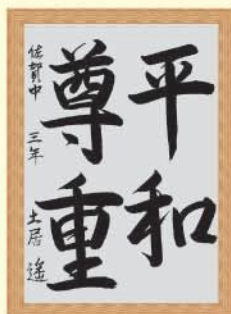 平和
尊重
佐賀中 三年 土居 遥